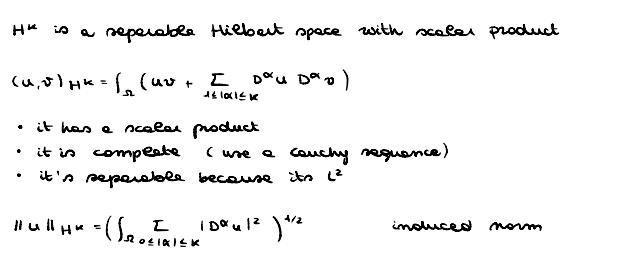 H^k is a separable Hilbert space with scalar product
(u,v)_{H^k} = ∫_Ω (uv + Σ_{1≤|α|≤k} D^α u D^α v)
• it has a scalar product
• it is complete (use a cauchy sequence)
• it's separable because its L^2
||u||_{H^k} = (∫_Ω Σ_{0≤|α|≤k} |D^α u|^2)^{1/2} induced norm